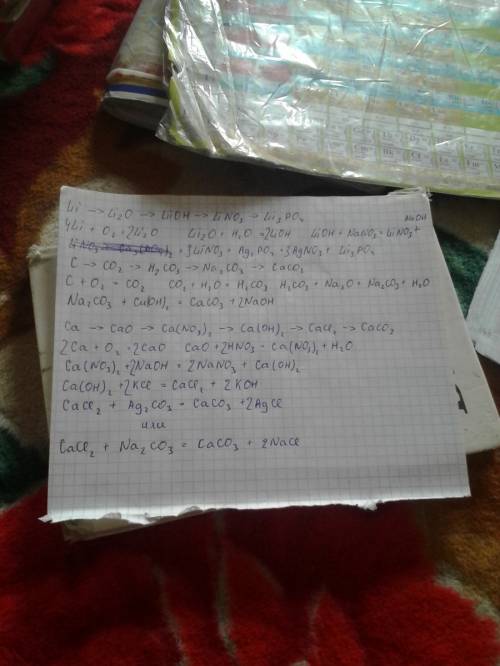 Li → Li₂O → LiOH → LiNO₃ → Li₃PO₄
4Li + O₂ = 2Li₂O Li₂O + H₂O = 2LiOH LiOH + NaNO₃ = LiNO₃ + NaOH
3LiNO₃ + Ag₃PO₄ = 3AgNO₃ + Li₃PO₄
C → CO₂ → H₂CO₃ → Na₂CO₃ → CaCO₃
C + O₂ = CO₂ CO₂ + H₂O = H₂CO₃ H₂CO₃ + Na₂O = Na₂CO₃ + H₂O
Na₂CO₃ + Ca(OH)₂ = CaCO₃ + 2NaOH
Ca → CaO → Ca(NO₃)₂ → Ca(OH)₂ → CaCl₂ → CaCO₃
2Ca + O₂ = 2CaO CaO + 2HNO₃ = Ca(NO₃)₂ + H₂O
Ca(NO₃)₂ + 2NaOH = 2NaNO₃ + Ca(OH)₂
Ca(OH)₂ + 2KCl = CaCl₂ + 2KOH
CaCl₂ + Ag₂CO₃ = CaCO₃ + 2AgCl
или
CaCl₂ + Na₂CO₃ = CaCO₃ + 2NaCl